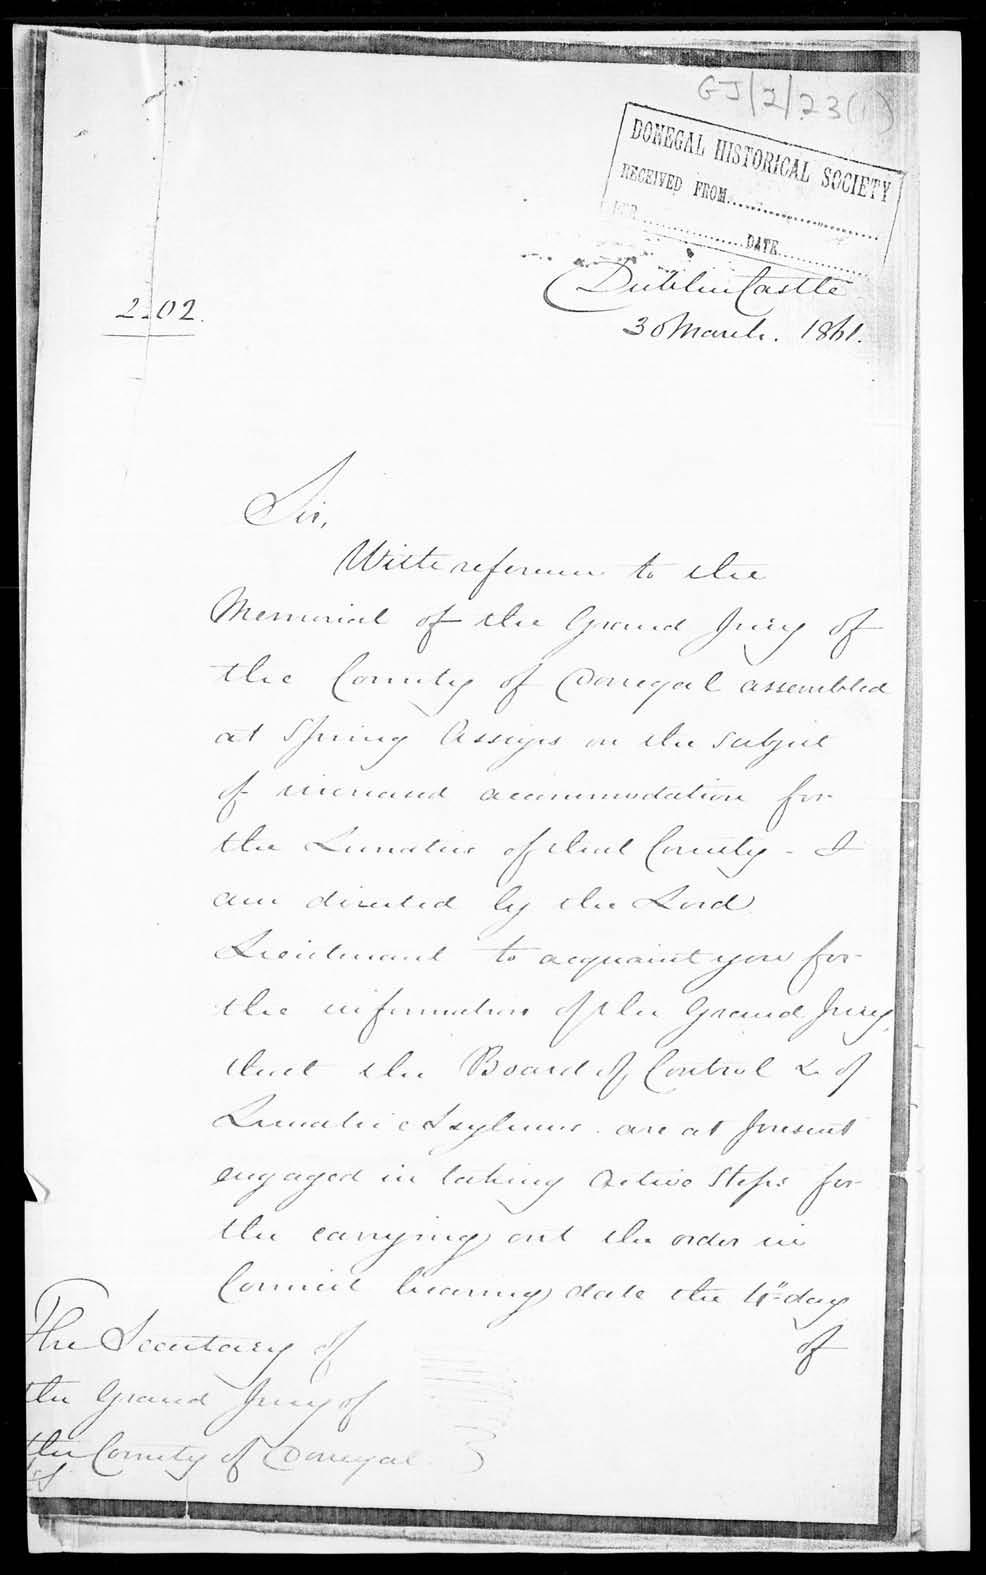 GJ/2/23(1)
DONEGAL HISTORICAL SOCIETY
RECEIVED FROM
DATE
Dublin Castle
30 March. 1861.
2202.
Sir,
With reference to the
Memorial of the Grand Jury of
the County of Donegal assembled
at Spring Assizes on the subject
of increased accommodation for
the Lunatics of that County - I
am directed by the Lord
Lieutenant to acquaint you for
the information of the Grand Jury,
that the Board of Control & of
Lunatic Asylums are at present
engaged in taking active steps for
the carrying out the order in
Council bearing date the 4" day
of
The Secretary of
the Grand Jury of
the County of Donegal